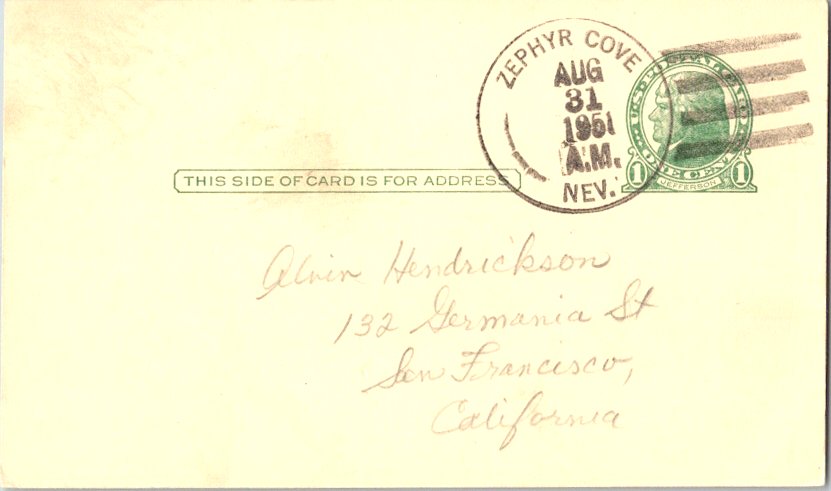 ZEPHYR COVE
AUG
31
1951
A.M.
NEV.
U.S. POSTAL CARD
ONE CENT
1 JEFFERSON 1
THIS SIDE OF CARD IS FOR ADDRESS
Alvin Hendrickson
132 Germania St
San Francisco,
California